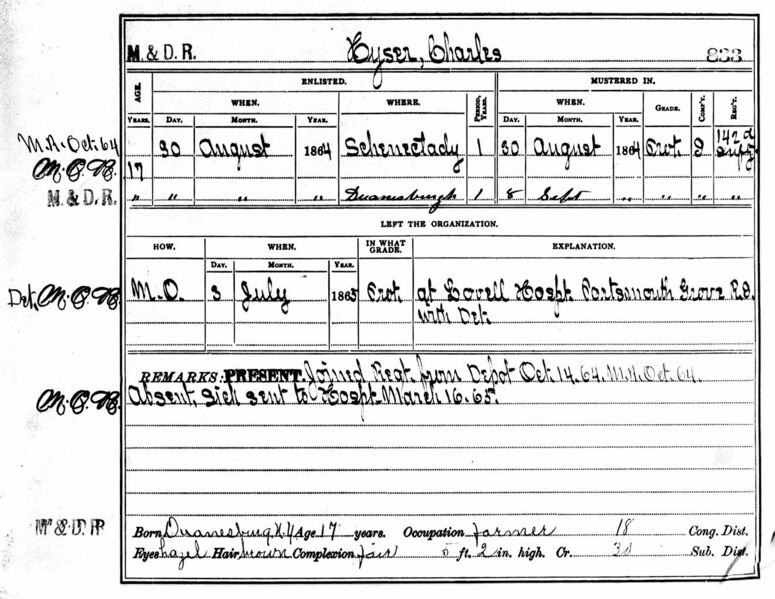 M. & D. R. Hyser, Charles 833
ENLISTED. MUSTERED IN.
AGE. WHEN. WHERE. PERIOD, YEARS. WHEN. GRADE. COMP'Y. REG'T.
YEARS. DAY. MONTH. YEAR. DAY. MONTH. YEAR.
M.R. Oct. 64 30 August 1864 Schenectady 1 30 August 1864 Prvt. 142d Inf.
M.O.R. 17
M. & D. R. " " " " Duanesburgh 1 8 Sept "
LEFT THE ORGANIZATION.
HOW. WHEN. IN WHAT GRADE. EXPLANATION.
DAY. MONTH. YEAR.
Det. M.O.R. M.O. 3 July 1865 Prvt. at Lovell Hospt. Portsmouth Grove R.I.
with Det.
REMARKS: PRESENT. Joined Regt. from Depot Oct. 14. 64. M.R. Oct. 64.
M.O.R. Absent, sick sent to Hospt. March 16. 65.
M & D R Born Duanesburg N.Y Age 17 years. Occupation farmer 18 Cong. Dist.
Eyes hazel Hair, brown Complexion fair 5 ft. 2 in. high. Cr. Sub. Dist.